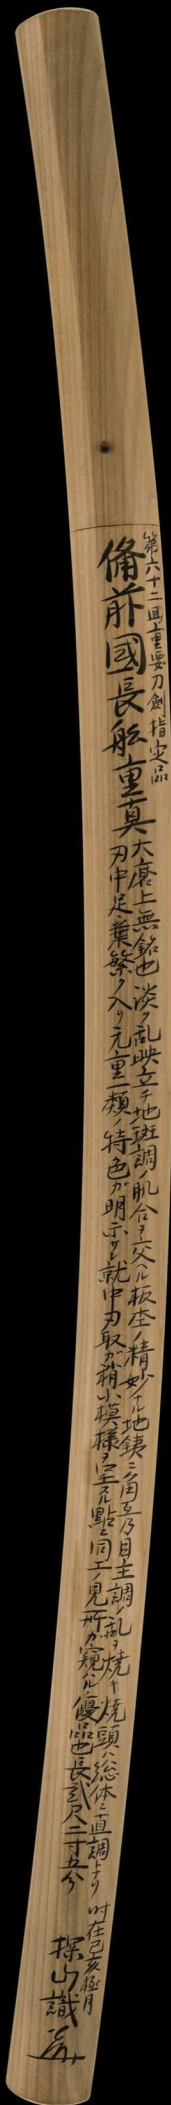 第六十二回重要刀剣指定品
備前國長船重真
大磨上無銘也 淡ク乱映立チ地斑調ノ肌合ヲ交ヘル板杢ノ精妙ナル地鉄ニ角互乃目主調ノ乱ヲ焼キ焼頭ハ総体ニ直調トナリ
刃中足葉繁ク入リ元重一類ノ特色ガ明示サレ就中刃取ガ稍小模様ヲ呈スル點ニ同工ノ見所ガ窺ハル優品也 長貳尺二寸五分
时在己亥極月
探山識